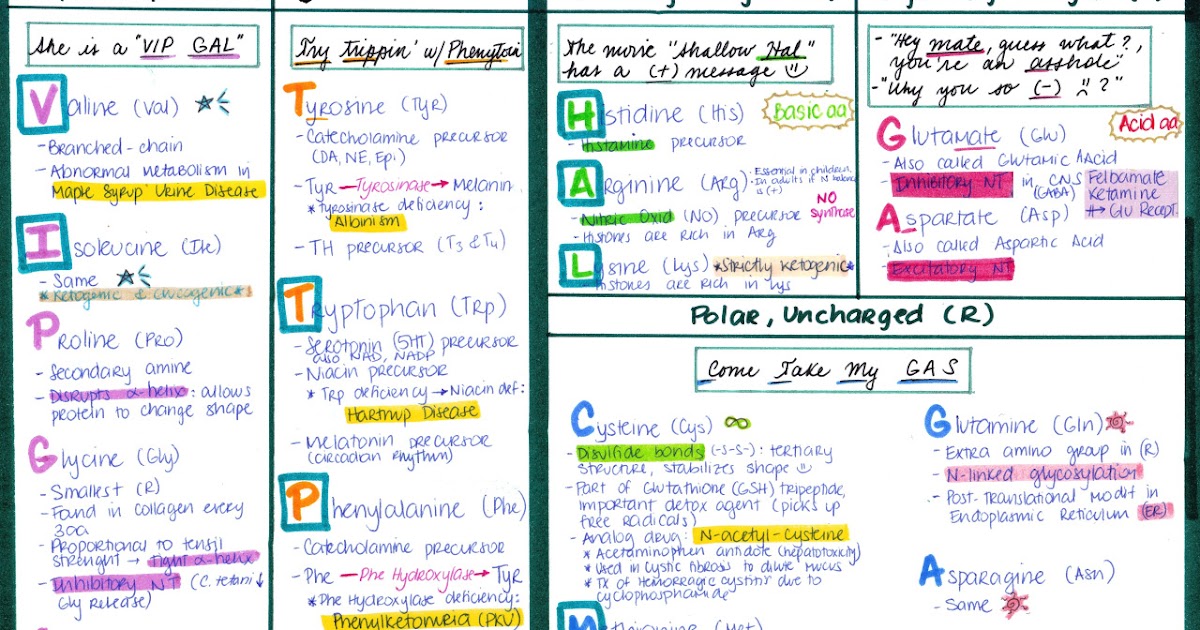 She is a "VIP GAL"
Valine (Val)
- Branched-chain
- Abnormal metabolism in
Maple Syrup Urine Disease
Isoleucine (Ile)
- Same
*Ketogenic & Glucogenic*
Proline (Pro)
- Secondary amine
- Disrupts α-helix: allows
protein to change shape
Glycine (Gly)
- Smallest (R)
- Found in collagen every
3aa
- Proportional to tensil
strenght → tight α-helix
- Inhibitory NT (C. tetani ↓
Gly release)
Try trippin' w/ Phenytoin
Tyrosine (Tyr)
- Catecholamine precursor
(DA, NE, Epi)
- Tyr —Tyrosinase→ Melanin
*Tyrosinase deficiency:
Albinism
- TH precursor (T3 & T4)
Tryptophan (Trp)
- Serotonin (5HT) precursor
also NAD, NADP
- Niacin precursor
* Trp deficiency → Niacin def:
Hartnup Disease
- Melatonin precursor
(circadian rhythm)
Phenylalanine (Phe)
- Catecholamine precursor
- Phe —Phe Hydroxylase→ Tyr
*Phe Hydroxylase deficiency:
Phenylketonuria (PKU)
The movie "shallow Hal"
has a (+) message
Histidine (His)
Basic aa
- Histamine precursor
Arginine (Arg)
· Essential in children
· In adults if N balance
is (+)
- Nitric Oxid (NO) precursor
NO
synthase
- Histones are rich in Arg
Lysine (Lys) *Strictly ketogenic*
- Histones are rich in Lys
- "Hey mate, guess what?,
you're an asshole"
- "Why you so (-) ?"
Glutamate (Glu)
Acid aa
- Also called Glutamic Acid
- Inhibitory NT in CNS
(GABA)
Felbamate
Ketamine
Glu Recept.
Aspartate (Asp)
- Also called Aspartic Acid
- Excitatory NT
Polar, Uncharged (R)
Come Take My GAS
Cysteine (Cys)
- Disulfide bonds (-S-S-): tertiary
structure, stabilizes shape
- Part of Glutathione (GSH) tripeptide,
important detox agent (picks up
free radicals)
- Analog drug: N-acetyl-cysteine
* Acetaminophen antidote (hepatotoxicity)
* Used in Cystic Fibrosis to dilute mucus
* Tx of Hemorragic cystitis due to
cyclophosphamide
Methionine (Met)
Glutamine (Gln)
- Extra amino group in (R)
- N-linked glycosylation
- Post-Translational modif in
Endoplasmic Reticulum (ER)
Asparagine (Asn)
- Same